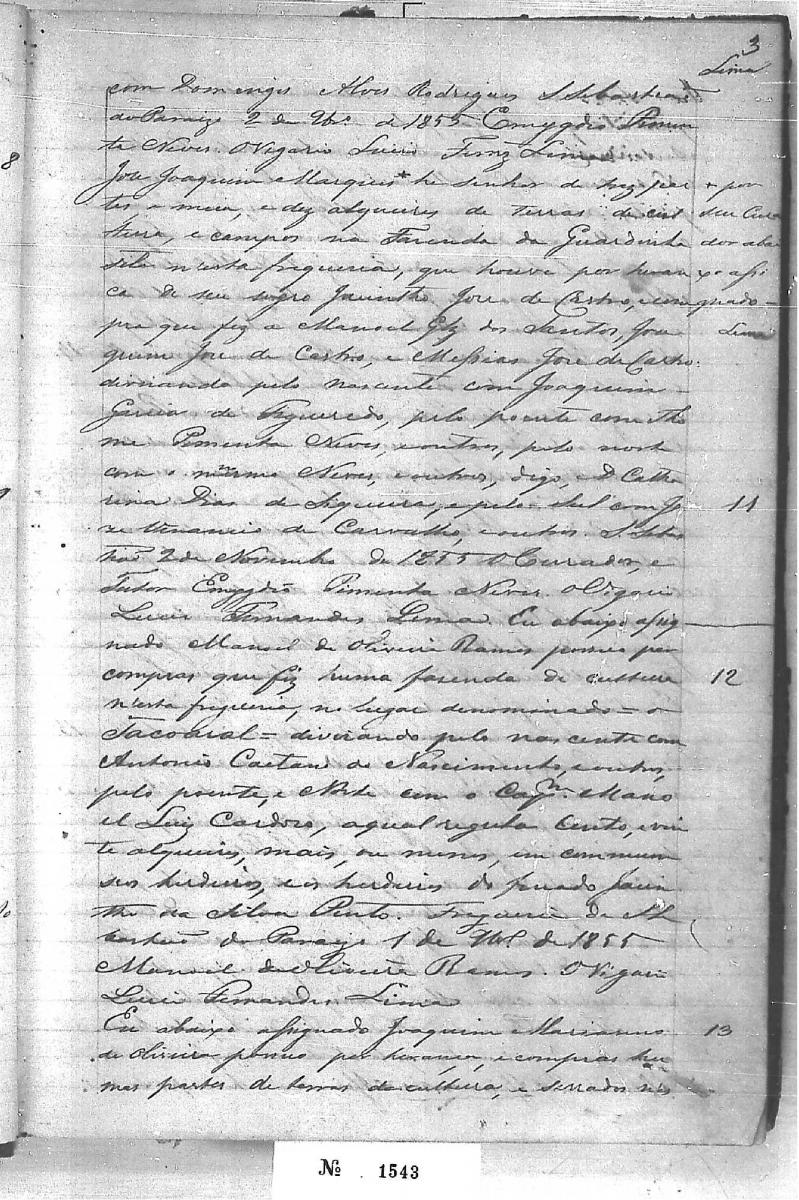 3
Lima
com Domingos Alves Rodrigues S Sebastiaõ
do Paraizo 2 de Nbr.º de 1855 Emygdio Pimen
ta Neves. O Vigario Lucio Fernz Lima
8
Jose Joaquim Marques * he senhor de trez par + por
tes e meia, e dez alqueires de terras de cul seu Cura
tura, e campos na Fazenda da Guardinha dor abai
sita n'esta freguezia, que houve por heran xo assi
ça de seu sogro Jacintho Jose de Castro, e com gnado -
pra que fez a Manoel Glz dos Santos, Joa Lima
quim Jose de Castro, e Messias Jose de Castro:
divisando pelo nascente com Joaquim
Garcia de Figueredo, pelo poente com Tho
me Pimenta Neves, e outros, pelo norte
com o mesmo Neves, e outros, digo, e D Catha
rina Dias de Siqueira, e pelo Sul com Jo 11
ze Venancio de Carvalho, e outros. S. Sebas
tiaõ 2 de Novembro de 1855 O Curador, e
Tutor Emygdio Pimenta Neves. O Vigario
Lucio Fernandes Lima Eu abaixo assig
nado Manoel de Oliveira Ramos possuo por
compras que fiz huma fazenda de cultura 12
n'esta freguezia, no lugar denominado = o
Tacoaral = divisando pelo nascente com
Antonio Caetano do Nascimento, e outros,
pelo poente, e Norte com o Capm. Mano
el Luiz Cardozo, a qual regula cento, e vin
te alqueires, mais, ou menos, em commum
seos herdeiros, e os herdeiros do finado Jacin
tho da Silva Pinto. Freguezia de S Se
bastiaõ do Paraizo 1 de Nbr.º de 1855
Manoel de Oliveira Ramos. O Vigario
Lucio Fernandes Lima
Eu abaixo assignado Joaquim Marianno 13
de Oliveira possuo por herança, e compras hu
mas partes de terras de cultura, e serrados nes
Nº 1543